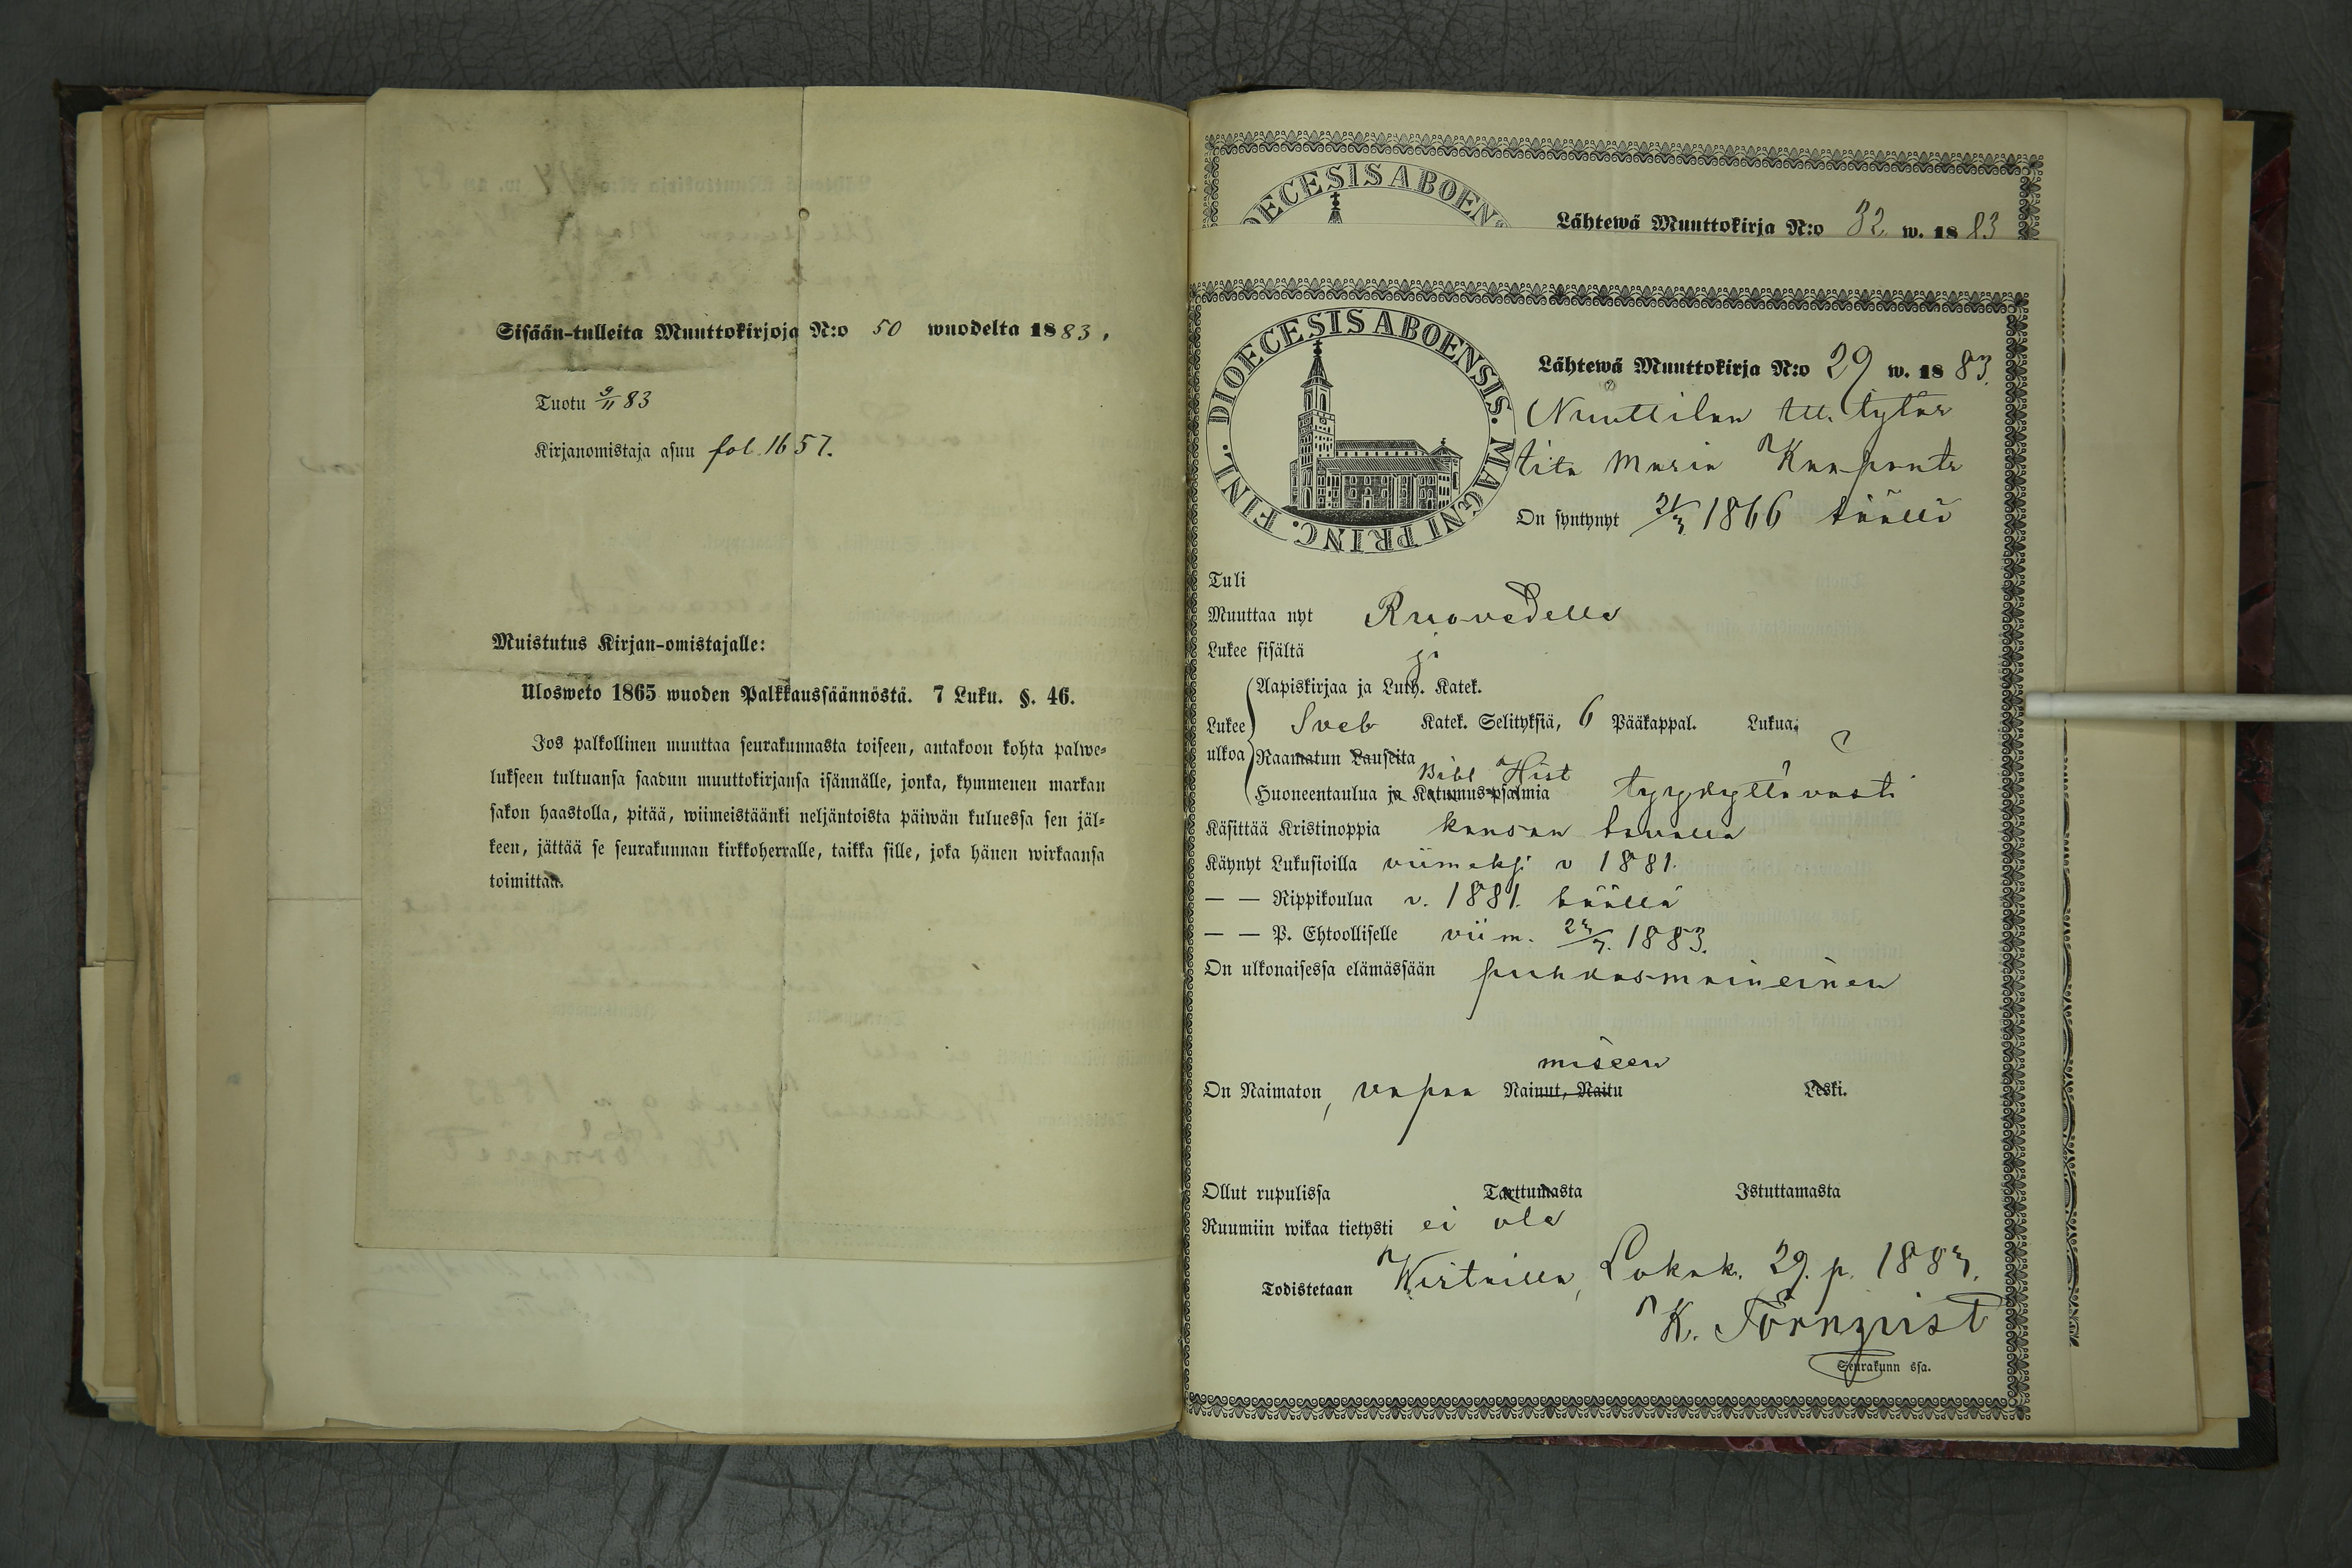 Sisään-tulleita Muuttokirjoja N:o 50 wuodelta 1883.
Tuotu 9/11 83
Kirjanomistaja asuu fol. 1657.
Muistutus Kirjan-omistajalle:
Ulosweto 1865 wuoden Palkkaussäännöstä. 7 Luku. §. 46.
Jos palkollinen muuttaa seurakunnasta toiseen, antakoon kohta palwe-
lukseen tultuansa saadun muuttokirjansa isännälle, jonka, kymmenen markan
sakon haastolla, pitää, wiimeistäänki neljäntoista päiwän kuluessa sen jäl-
keen, jättää se seurakunnan kirkkoherralle, taikka sille, joka hänen wirkaansa
toimittaa.
DIOECESIS ABOEN
Lähtewä Muuttokirja N:o 32 w. 1883
DIOECESIS ABOENSIS. MAGNI PRINC. FINL.
Lähtewä Muuttokirja N:o 29 w. 1883.
Nuuttilan tytär
Maria
On syntynyt 21/3 1866 täällä
Tuli
Muuttaa nyt Ruovedelle
Lukee sisältä
Lukee ulkoa
Aapiskirjaa ja Luth. Katek.
Sveb Katek. Selityksiä, 6 Pääkappal. Lukua.
Raamatun Lauseita
Bibl Hist
Huoneentaulua ja Katumus-psalmia tyydyttävästi
Käsittää Kristinoppia kansan tavalla
Käynyt Lukusioilla viimeksi v 1881.
— — Rippikoulua v. 1881. täällä
— — P. Ehtoolliselle viim. 1883.
On ulkonaisessa elämässään puhdasmaineinen
miseen
On Naimaton, vapaa Nainut, Naitu Leski.
Ollut rupulissa Tarttumasta Istuttamasta
Ruumiin wikaa tietysti ei ole
Todistetaan Wirtailla, Lokak. 29. p. 1883.
K. Törnqvist
Seurakunn ssa.